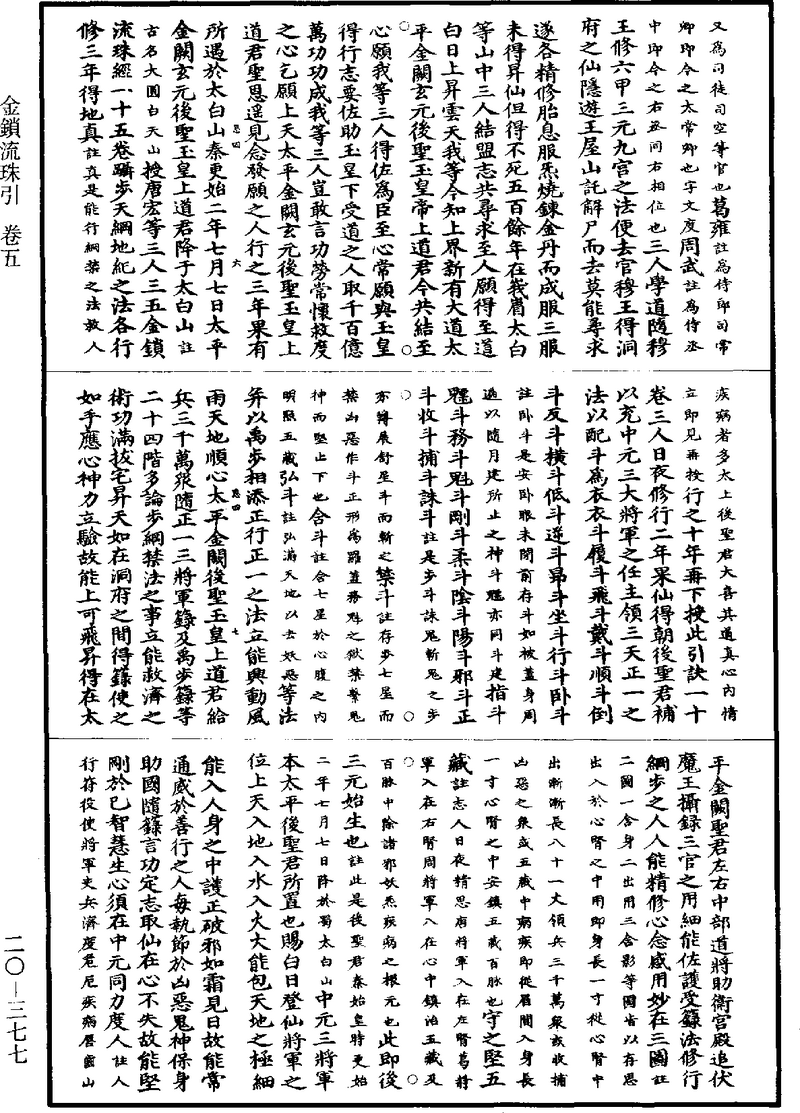 金鎖流珠引　卷五
二〇—三七七
又爲司徒司空等官也葛雍註爲侍郎司常
卿即今之太常卿也字文度周武註爲侍丞
中即今之右丞同右相位也三人學道隨穆
王修六甲三元九宮之法便去官穆王得洞
府之仙隱遊王屋山託解尸而去莫能尋求
遂各精修胎息服炁燒鍊金丹而成服三服
未得昇仙但得不死五百餘年在峩嵋太白
等山中三人結盟志共尋求至人願得至道
白日上昇雲天我等今知上界新有大道太
平金闕玄元後聖玉皇帝上道君今共結至
心願我等三人得佐爲臣至心常願與玉皇
得行志要佐助玉皇下受道之人取千百億
萬功功成我等三人豈敢言功勞常懷救度
之心乞願上天太平金闕玄元後聖玉皇上
道君聖恩遥見念發願之人行之三年果有
所遇於太白山秦更始二年七月七日太平
金闕玄元後聖玉皇上道君降于太白山註
古名大圓白天山授唐宏等三人三五金鎖
流珠經一十五卷躡步天綱地紀之法各行
修三年得地真註真是能行綱禁之法救人
疾病者多太上後聖君大喜其道真心內情
立即見再授行之十年再下授此引訣一十
卷三人日夜修行二年果仙得朝後聖君補
以充中元三大將軍之任主領三天正一之
法以配斗爲衣衣斗履斗飛斗戴斗順斗倒
斗反斗橫斗低斗逆斗昂斗坐斗行斗卧斗
註卧斗是安卧眼未閉前存斗如被蓋身周
遍以隨月建所止之神斗魁亦同斗建指斗
魁斗務斗魁斗剛斗柔斗陰斗陽斗邪斗正
斗收斗捕斗誅斗註是步斗誅鬼斬鬼之步
亦歸展舒足斗而斬之禁斗註存步七星而
禁凶惡作斗正形爲羅蓋務群之獄禁繫鬼
神而堅止下也含斗註含七星於心腹之內
明照五藏弘斗註弘滿天地以去妖惡等法
并以禹步相添正行正一之法立能興動風
雨天地順心太平金闕後聖玉皇上道君給
兵三千萬衆隨正一三將軍籙及禹步籙等
二十四階多論步綱禁法之事立能救濟之
術功滿拔宅昇天如在洞府之間得籙使之
如手應心神力立驗故能上可飛昇得在太
平金闕聖君左右中部道將助衛宮殿追伏
魔王攝録三官之用細能佐護受籙法修行
綱步之人人能精修心念感用妙在三圖註
二圖一含身二出用三含影等圖皆以存思
出入於心腎之中用即身長一寸從心腎中
出漸漸長八十一丈領兵三千萬衆或收捕
凶惡之衆或五藏中病疾即從眉間入身長
一寸心腎之中安鎮五藏百脉也守之堅五
藏註志人日夜精思唐將軍入在左腎葛將
軍入在右腎周將軍入在心中鎮治五藏及
百脉中除諸邪妖炁疾病之根元也此即後
三元始生也註此是後聖君秦始皇時更始
二年七月七日降於蜀太白山中元三將軍
本太平後聖君所置也賜白日登仙將軍之
位上天入地入水入火大能包天地之極細
能入人身之中護正破邪如霜見日故能常
通威於善行之人每執節於凶惡鬼神保身
助國隨籙言功定志取仙在心不失故能堅
剛於已智慧生心須在中元同力度人註人
行符役使將軍吏兵濟度危厄疾病唇齒山